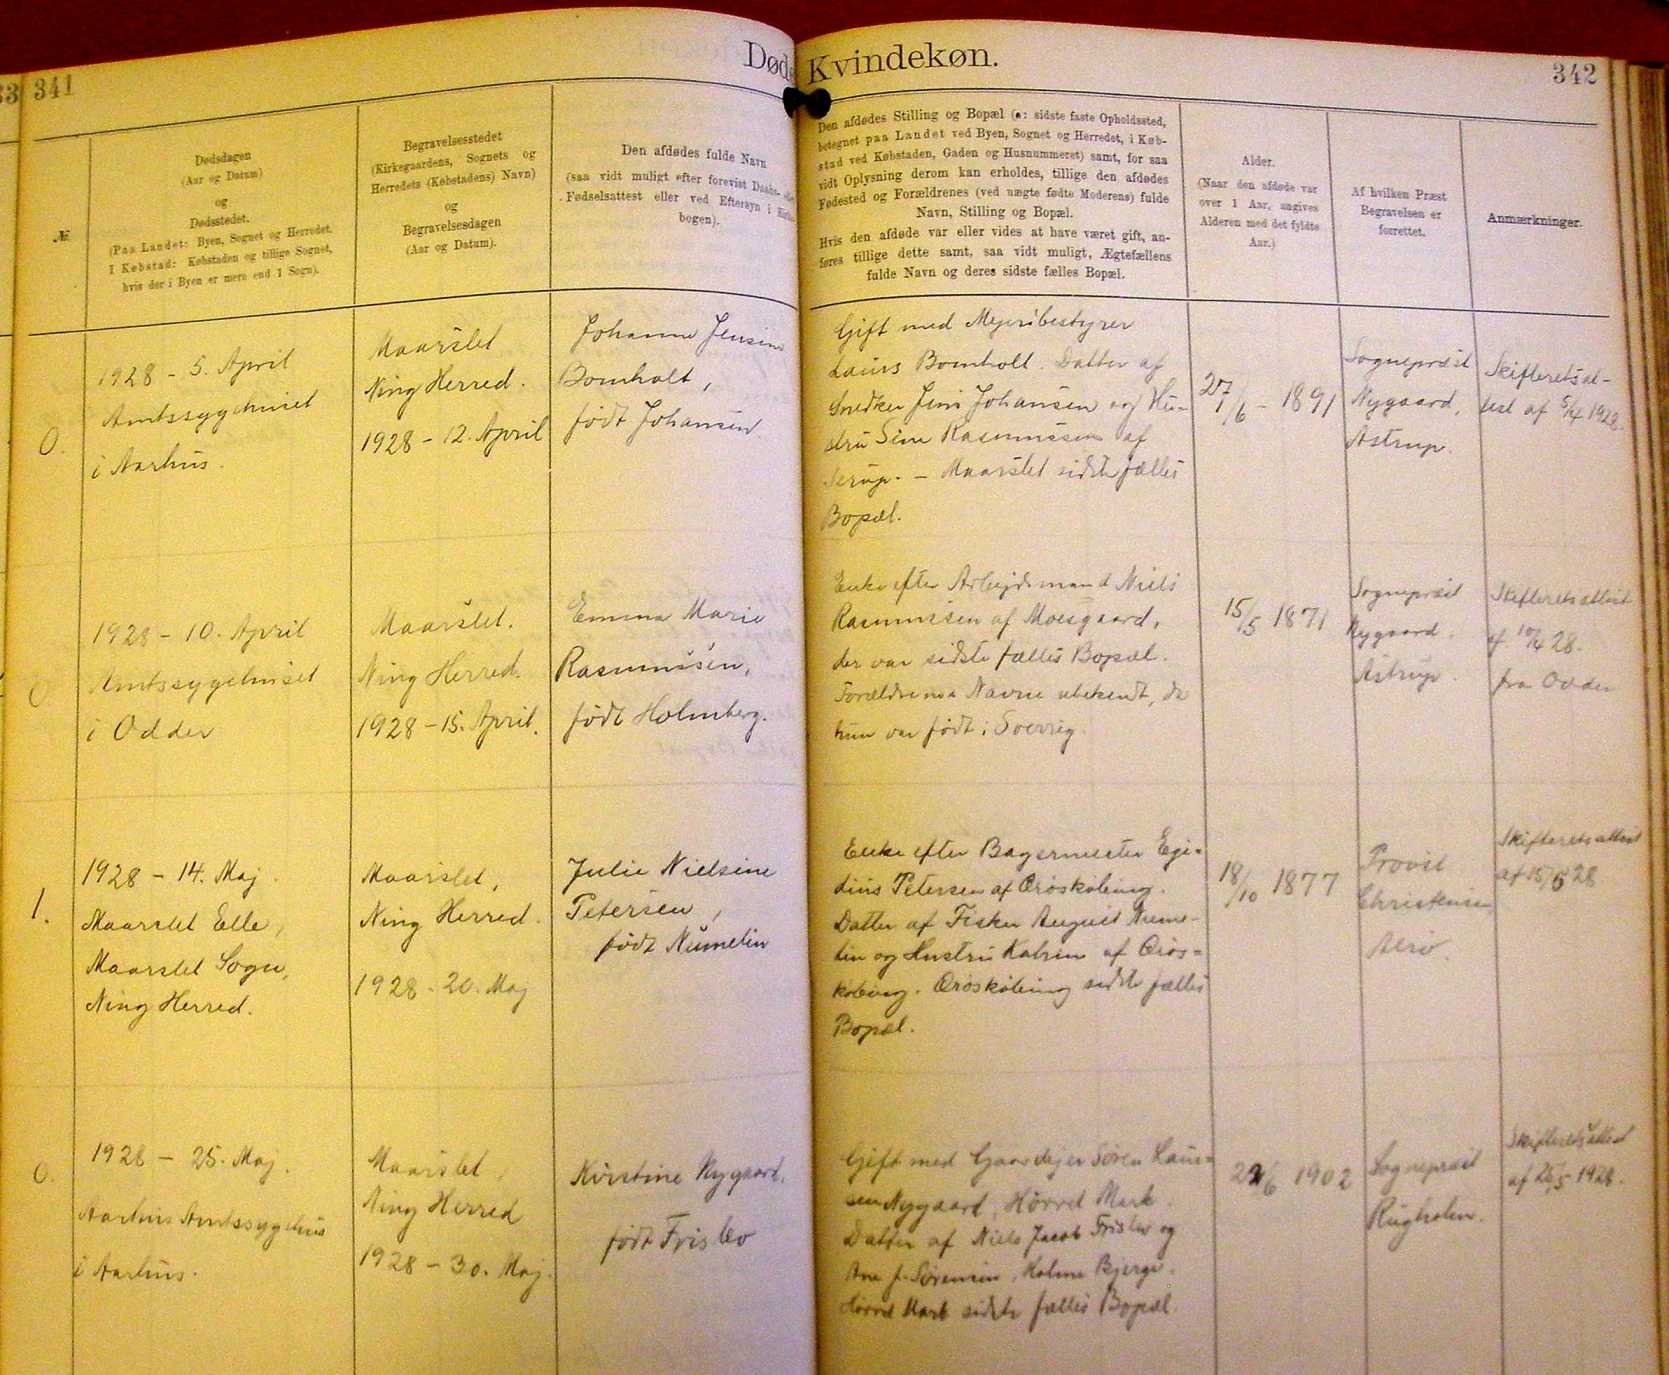 33 341
Døds
Kvindekøn.
342
№
Dødsdagen
(Aar og Datum)
og
Dødsstedet.
(Paa Landet: Byen, Sognet og Herredet.
I Købstad: Købstaden og tillige Sognet,
hvis der i Byen er mere end 1 Sogn).
Begravelsesstedet
(Kirkegaardens, Sognets og
Herredets (Købstadens) Navn)
og
Begravelsesdagen
(Aar og Datum).
Den afdødes fulde Navn
(saa vidt muligt efter forevist Daabs- eller
Fødselsattest eller ved Eftersyn i Kirke-
bogen).
Den afdødes Stilling og Bopæl (ɔ: sidste faste Opholdssted,
betegnet paa Landet ved Byen, Sognet og Herredet, i Køb-
stad ved Købstaden, Gaden og Husnummeret) samt, for saa
vidt Oplysning derom kan erholdes, tillige den afdødes
Fødested og Forældrenes (ved uægte fødte Moderens) fulde
Navn, Stilling og Bopæl.
Hvis den afdøde var eller vides at have været gift, an-
føres tillige dette samt, saa vidt muligt, Ægtefællens
fulde Navn og deres sidste fælles Bopæl.
Alder.
(Naar den afdøde var
over 1 Aar, angives
Alderen med det fyldte
Aar.)
Af hvilken Præst
Begravelsen er
forrettet.
Anmærkninger.
0.
1928 - 5. April
Amtssygehuset
i Aarhus.
Maarslet
Ning Herred.
1928 - 12. April
Johanne Jensine
Bomholt,
født Johansen.
Gift med Mejeribestyrer
Laurs Bomholt. Datter af
Snedker Jens Johansen og Hu-
stru Sine Rasmussen af
- Maarslet sidste fælles
Bopæl.
27/6 - 1891
Sognepræst
Nygaard,
Astrup.
Skifteretsat-
test af 5/4 1928.
0
1928 - 10. April
Amtssygehuset
i Odder
Maarslet.
Ning Herred.
1928 - 15. April.
Emma Marie
Rasmussen,
født Holmberg.
Enke efter Arbejdsmand Niels
Rasmussen af Moesgaard,
der var sidste fælles Bopæl.
Forældrenes Navne ubekendt, da
hun var født i Sverrig.
15/5 1871
Sognepræst
Nygaard.
Astrup.
Skifteretsattest
af 10/4 28.
fra Odder
1.
1928 - 14. Maj.
Maarslet Elle,
Maarslet Sogn,
Ning Herred.
Maarslet,
Ning Herred.
1928 - 20. Maj
Julie Nielsine
Petersen,
født Numelin
Enke efter Bagermester Egi-
dius Petersen af Ærøskøbing.
Datter af Fisker August Nume-
lin og Hustru Katrine af Ærøs-
købing. Ærøskøbing sidste fælles
Bopæl.
18/10 1877
Provst
Christensen
Ærø.
Skifteretsattest
af 15/5 28
0.
1928 - 25. Maj.
Aarhus Amtssygehus
i Aarhus.
Maarslet,
Ning Herred
1928 - 30. Maj.
Kirstine Nygaard,
født Frislev
Gift med Gaardejer Søren Laur-
sen Nygaard, Hørret Mark.
Datter af Niels Jacob Frislev og
Ane f. Sørensen, Holme Bjerge.
Hørret Mark sidste fælles Bopæl.
1902
Sognepræst
Rugholm.
Skifteretsattest
af 26/5 - 1928.